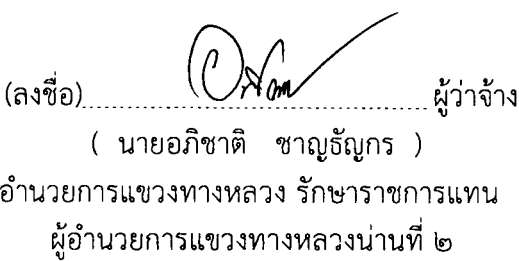 (ลงชื่อ)........................................ผู้ว่าจ้าง
( นายอภิชาติ ชาญธัญกร )
อำนวยการแขวงทางหลวง รักษาราชการแทน
ผู้อำนวยการแขวงทางหลวงน่านที่ ๒